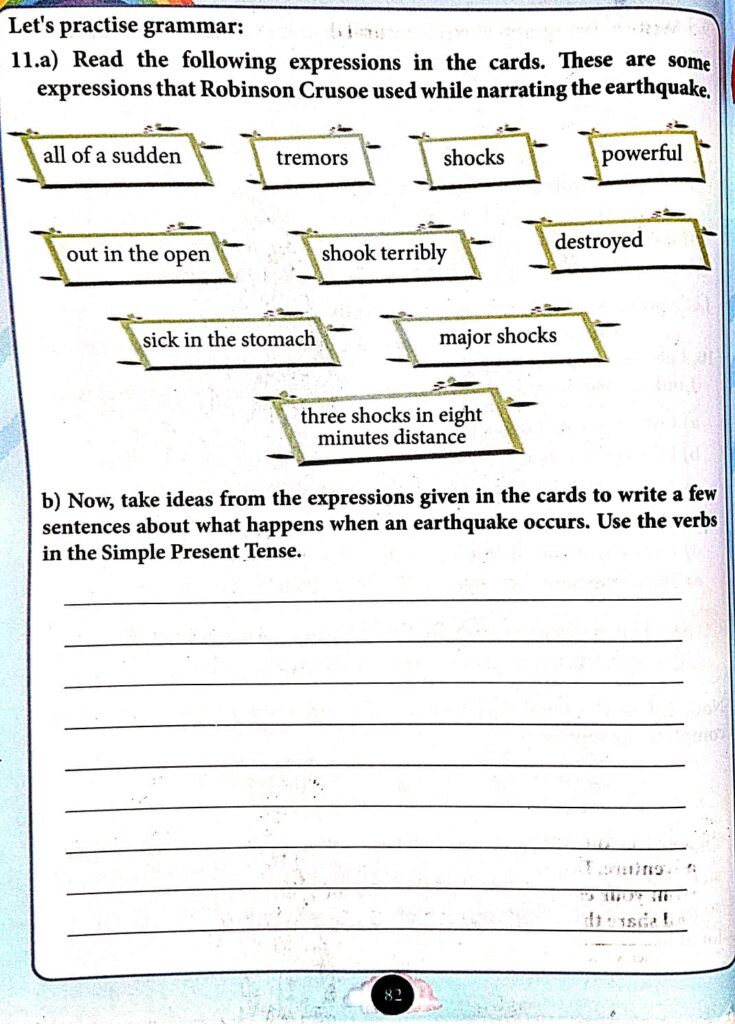 Let's practise grammar:
11.a) Read the following expressions in the cards. These are some
expressions that Robinson Crusoe used while narrating the earthquake.
all of a sudden
tremors
shocks
powerful
out in the open
shook terribly
destroyed
sick in the stomach
major shocks
three shocks in eight
minutes distance
b) Now, take ideas from the expressions given in the cards to write a few
sentences about what happens when an earthquake occurs. Use the verbs
in the Simple Present Tense.
82